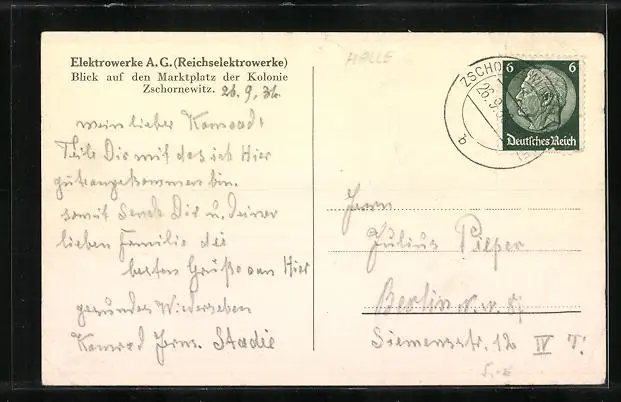 Elektrowerke A.G. (Reichselektrowerke)
Blick auf den Marktplatz der Kolonie
Zschornewitz. 26.9.36.
mein lieber Konrad!
Teile Dir mit das ich Hier
gut angekommen bin.
somit sende Dir u. deiner
lieben Familie die
besten Grüße von Hier
gesundes Wiedersehen
Konrad Herm. Stadie
HALLE
ZSCHO
26.9.3
b
6 6
Deutsches Reich
Herrn
Julius Pieper
Berlin N.W. 87
Siemensstr. 12 IV T.
5,-